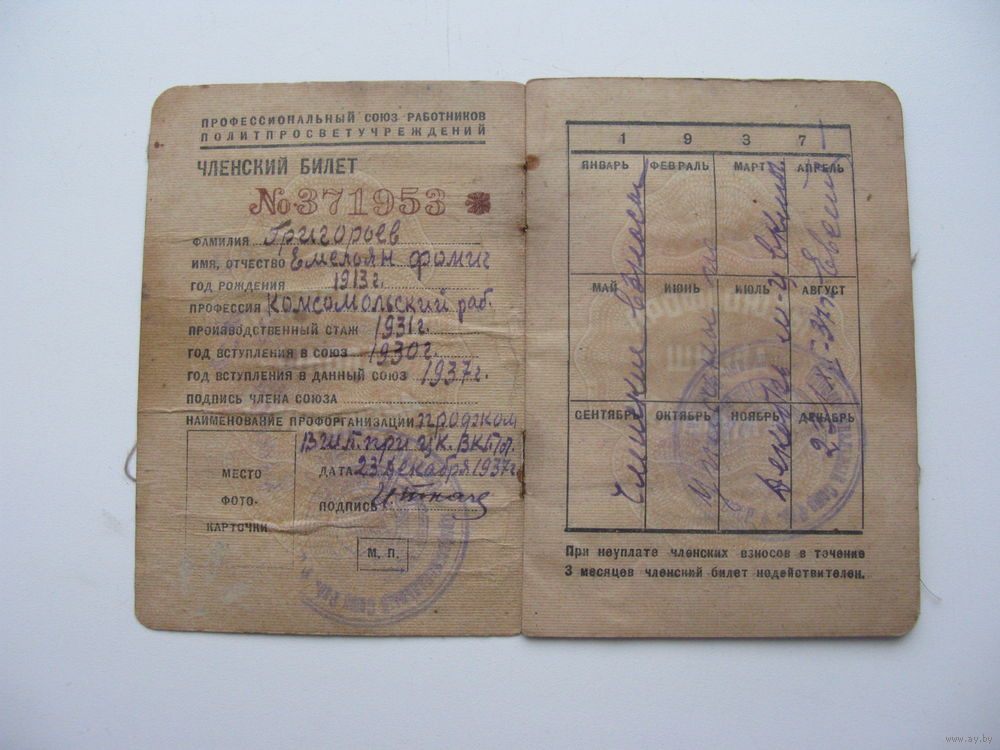 ПРОФЕССИОНАЛЬНЫЙ СОЮЗ РАБОТНИКОВ
ПОЛИТПРОСВЕТУЧРЕЖДЕНИЙ
ЧЛЕНСКИЙ БИЛЕТ
№ 371953
ФАМИЛИЯ Григорьев
ИМЯ, ОТЧЕСТВО Емельян Фомич
ГОД РОЖДЕНИЯ 1913 г.
ПРОФЕССИЯ Комсомольский раб.
ПРОИЗВОДСТВЕННЫЙ СТАЖ 1931 г.
ГОД ВСТУПЛЕНИЯ В СОЮЗ 1930 г.
ГОД ВСТУПЛЕНИЯ В ДАННЫЙ СОЮЗ 1937 г.
ПОДПИСЬ ЧЛЕНА СОЮЗА
НАИМЕНОВАНИЕ ПРОФОРГАНИЗАЦИИ
при Ц.К.
ДАТА 23 декабря 1937 г.
ПОДПИСЬ
МЕСТО
ФОТО-
КАРТОЧКИ
М. П.
1 9 3 7
ЯНВАРЬ ФЕВРАЛЬ МАРТ АПРЕЛЬ
МАЙ ИЮНЬ ИЮЛЬ АВГУСТ
СЕНТЯБРЬ ОКТЯБРЬ НОЯБРЬ ДЕКАБРЬ
Членские взносы
Декабрь м-ц вкл
23/XII-37 г.
При неуплате членских взносов в течение
3 месяцев членский билет недействителен.
www.ay.by